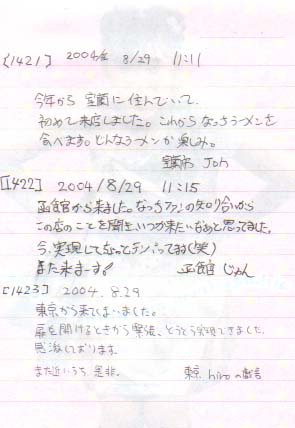 [1421] 2004年 8/29 11:11
今年から 室蘭に住んでいて、
初めて来店しました。これから なっちラーメンを
食べます。どんなラーメンか楽しみ。
室蘭市 Joh
[1422] 2004/8/29 11:15
函館から来ました。なっちファンの知り合いから
この店のことを聞き、いつか来たいなあと思ってました。
今、実現して、なってテンパってます(笑)
また来まーす!
函館 じゅん
[1423] 2004.8.29
東京から来てしまいました。
扉を開けるときから緊張、とうとう実現できました。
感激しております。
また近いうち、是非。 東京 hiro の戯言